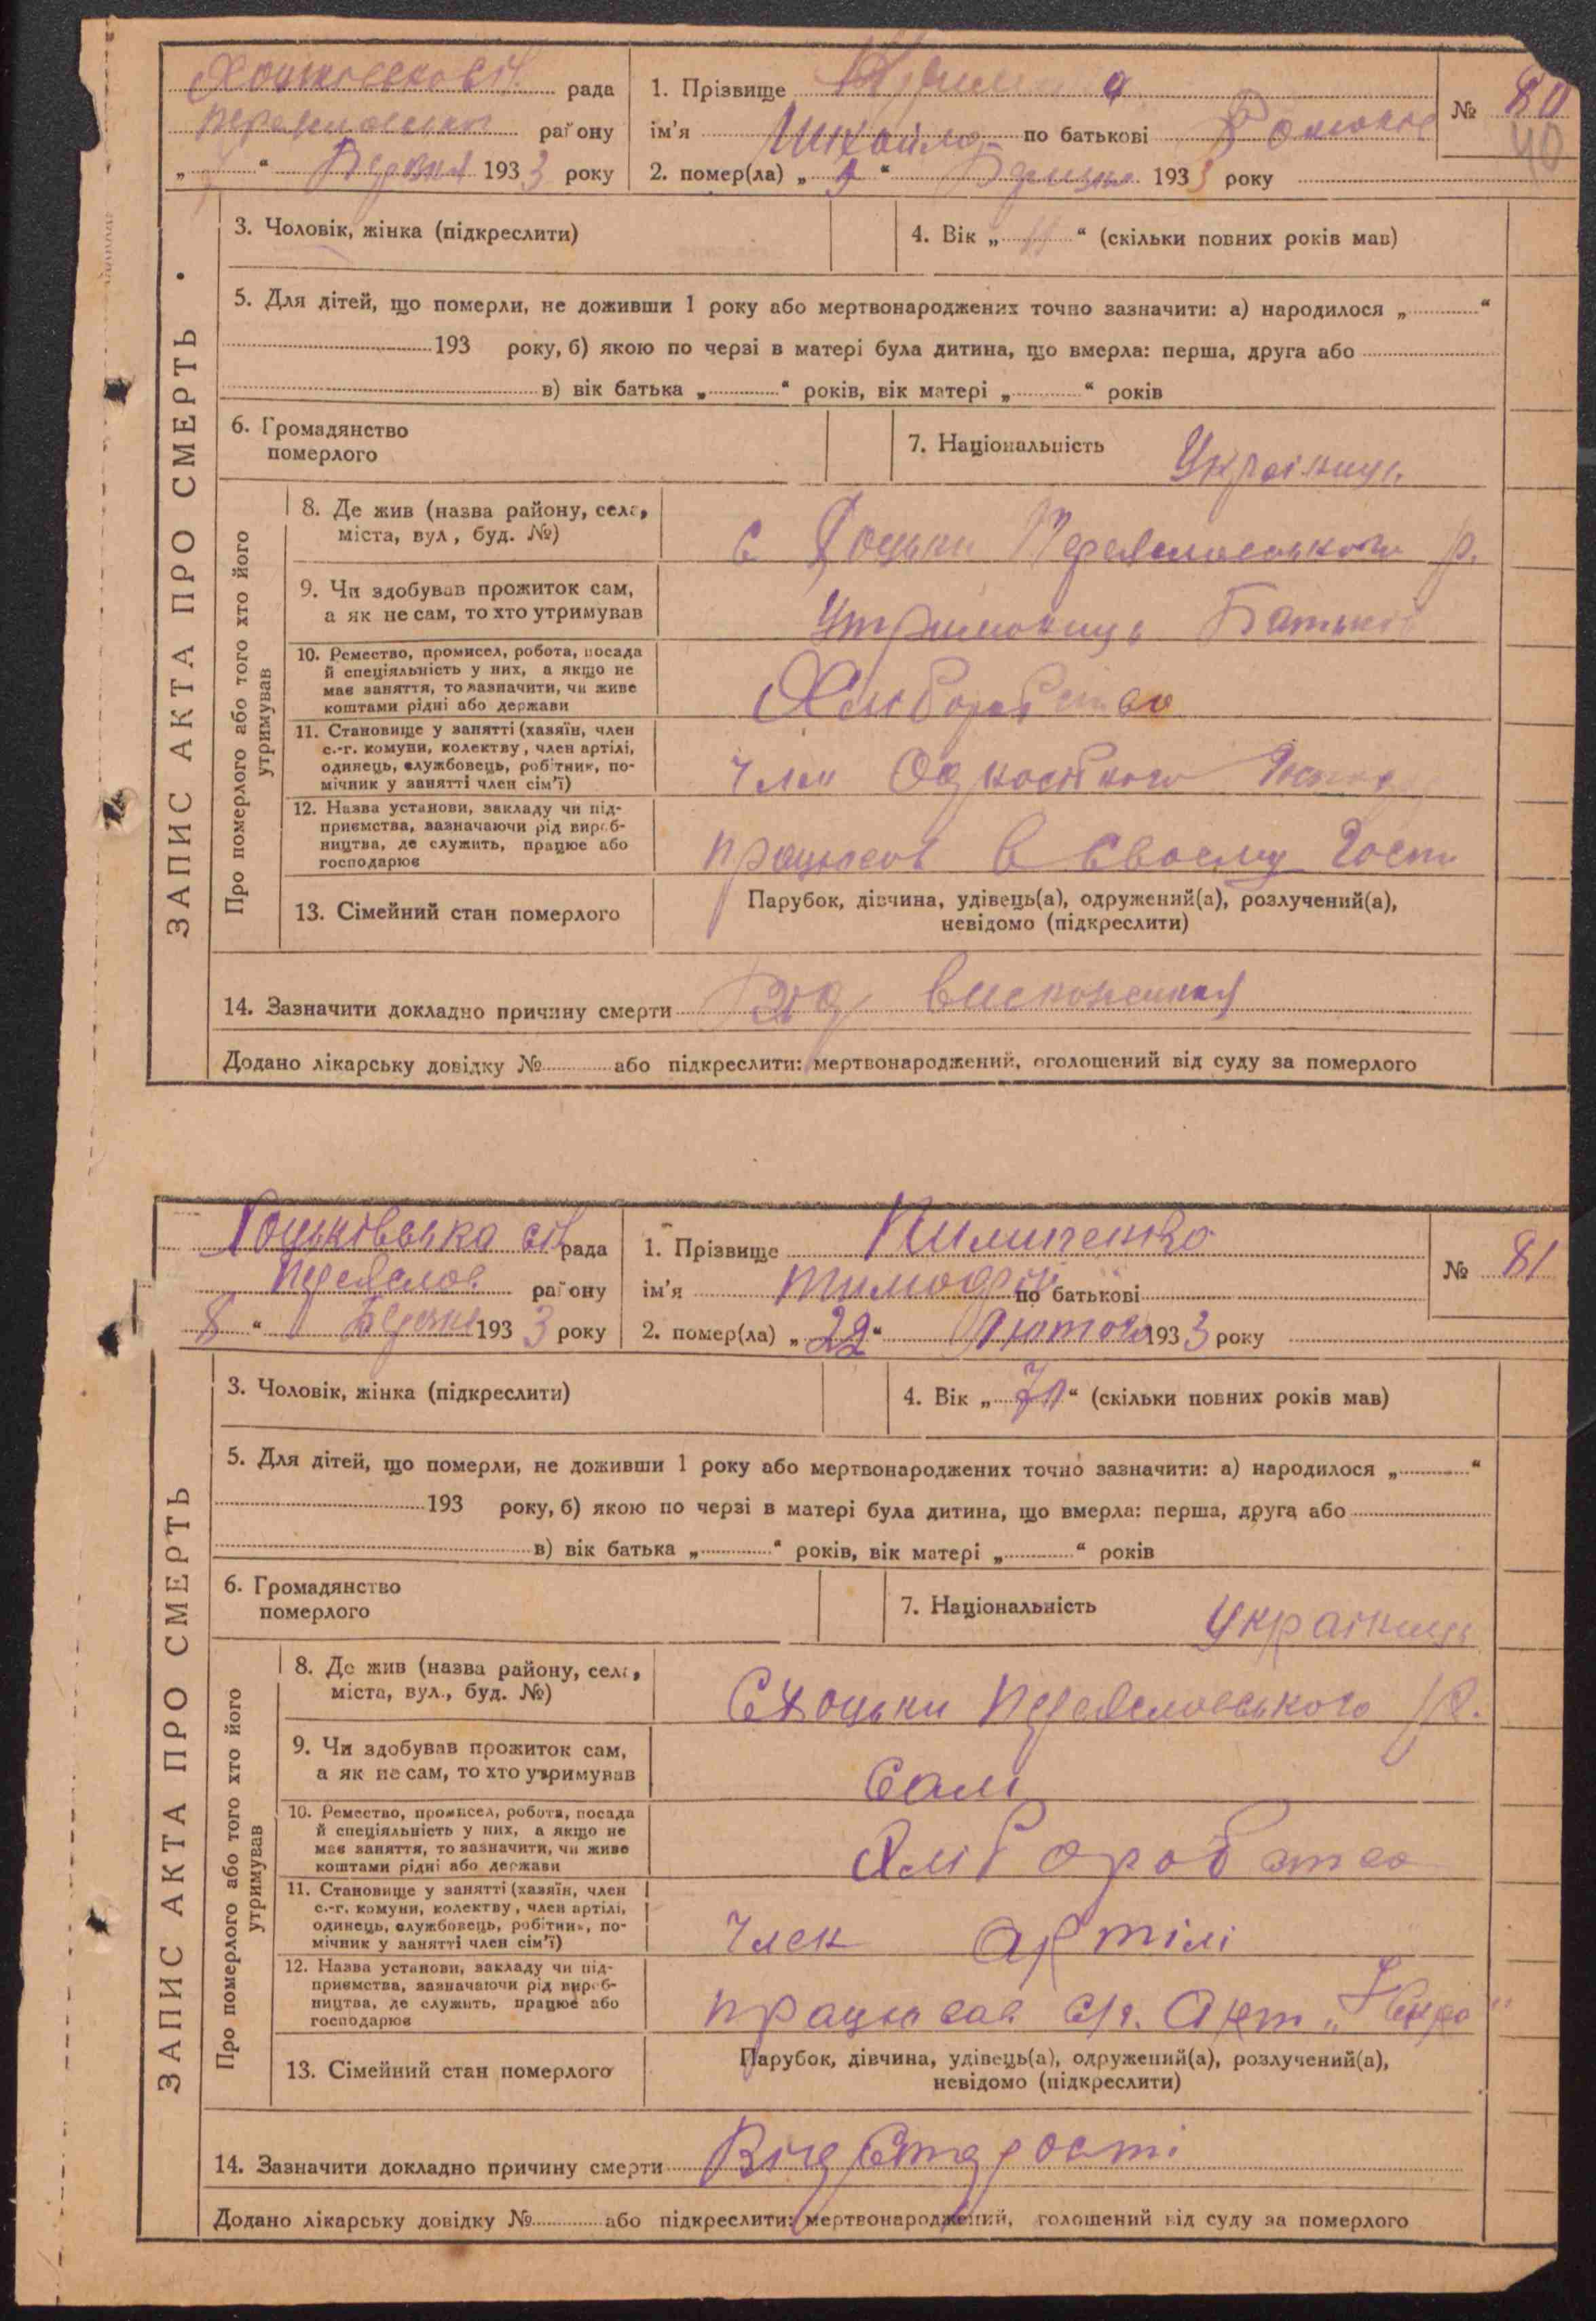 рада
району
193 3 року
1. Прізвище
ім'я Михайло по батькові
2. помер(ла) „ “ 193 3 року
№ 80
40
ЗАПИС АКТА ПРО СМЕРТЬ
3. Чоловік, жінка (підкреслити)
4. Вік „ 11 “ (скільки повних років мав)
5. Для дітей, що померли, не доживши 1 року або мертвонароджених точно зазначити: а) народилося „ “
193 року, б) якою по черзі в матері була дитина, що вмерла: перша, друга або
в) вік батька „ “ років, вік матері „ “ років
6. Громадянство
померлого
7. Національність Українець
Про померлого або того хто його
утримував
8. Де жив (назва району, села,
міста, вул., буд. №)
с Хоцьки Переяславського р.
9. Чи здобував прожиток сам,
а як не сам, то хто утримував
Утриманець Батьків
10. Ремество, промисел, робота, посада
й спеціяльність у них, а якщо не
має заняття, то зазначити, чи живе
коштами рідні або держави
Хліборобство
11. Становище у занятті (хазяїн, член
с.-г. комуни, колектву, член артілі,
одинець, службовець, робітник, по-
мічник у занятті член сім'ї)
член
12. Назва установи, закладу чи під-
приємства, зазначаючи рід вироб-
ництва, де служить, працює або
господарює
працював в своєму Госп
13. Сімейний стан померлого
Парубок, дівчина, удівець(а), одружений(а), розлучений(а),
невідомо (підкреслити)
14. Зазначити докладно причину смерти Від виснаження
Додано лікарську довідку № або підкреслити: мертвонароджений, оголошений від суду за померлого
Хоцьківська сіл рада
Переяслов району
8 “ Березня 193 3 року
1. Прізвище Пилипенко
ім'я Тимофій по батькові
2. помер(ла) „ 22 “ Лютого 193 3 року
№ 81
ЗАПИС АКТА ПРО СМЕРТЬ
3. Чоловік, жінка (підкреслити)
4. Вік „ 70 “ (скільки повних років мав)
5. Для дітей, що померли, не доживши 1 року або мертвонароджених точно зазначити: а) народилося „ “
193 року, б) якою по черзі в матері була дитина, що вмерла: перша, друга або
в) вік батька „ “ років, вік матері „ “ років
6. Громадянство
померлого
7. Національність Українець
Про померлого або того хто його
утримував
8. Де жив (назва району, села,
міста, вул., буд. №)
С Хоцьки Переяславського р.
9. Чи здобував прожиток сам,
а як не сам, то хто утримував
Сам
10. Ремество, промисел, робота, посада
й спеціяльність у них, а якщо не
має заняття, то зазначити, чи живе
коштами рідні або держави
Хліборобство
11. Становище у занятті (хазяїн, член
с.-г. комуни, колектву, член артілі,
одинець, службовець, робітник, по-
мічник у занятті член сім'ї)
Член Артілі
12. Назва установи, закладу чи під-
приємства, зазначаючи рід вироб-
ництва, де служить, працює або
господарює
працював с/г. Арт
13. Сімейний стан померлого
Парубок, дівчина, удівець(а), одружений(а), розлучений(а),
невідомо (підкреслити)
14. Зазначити докладно причину смерти Від Старості
Додано лікарську довідку № або підкреслити: мертвонароджений, голошений від суду за померлого